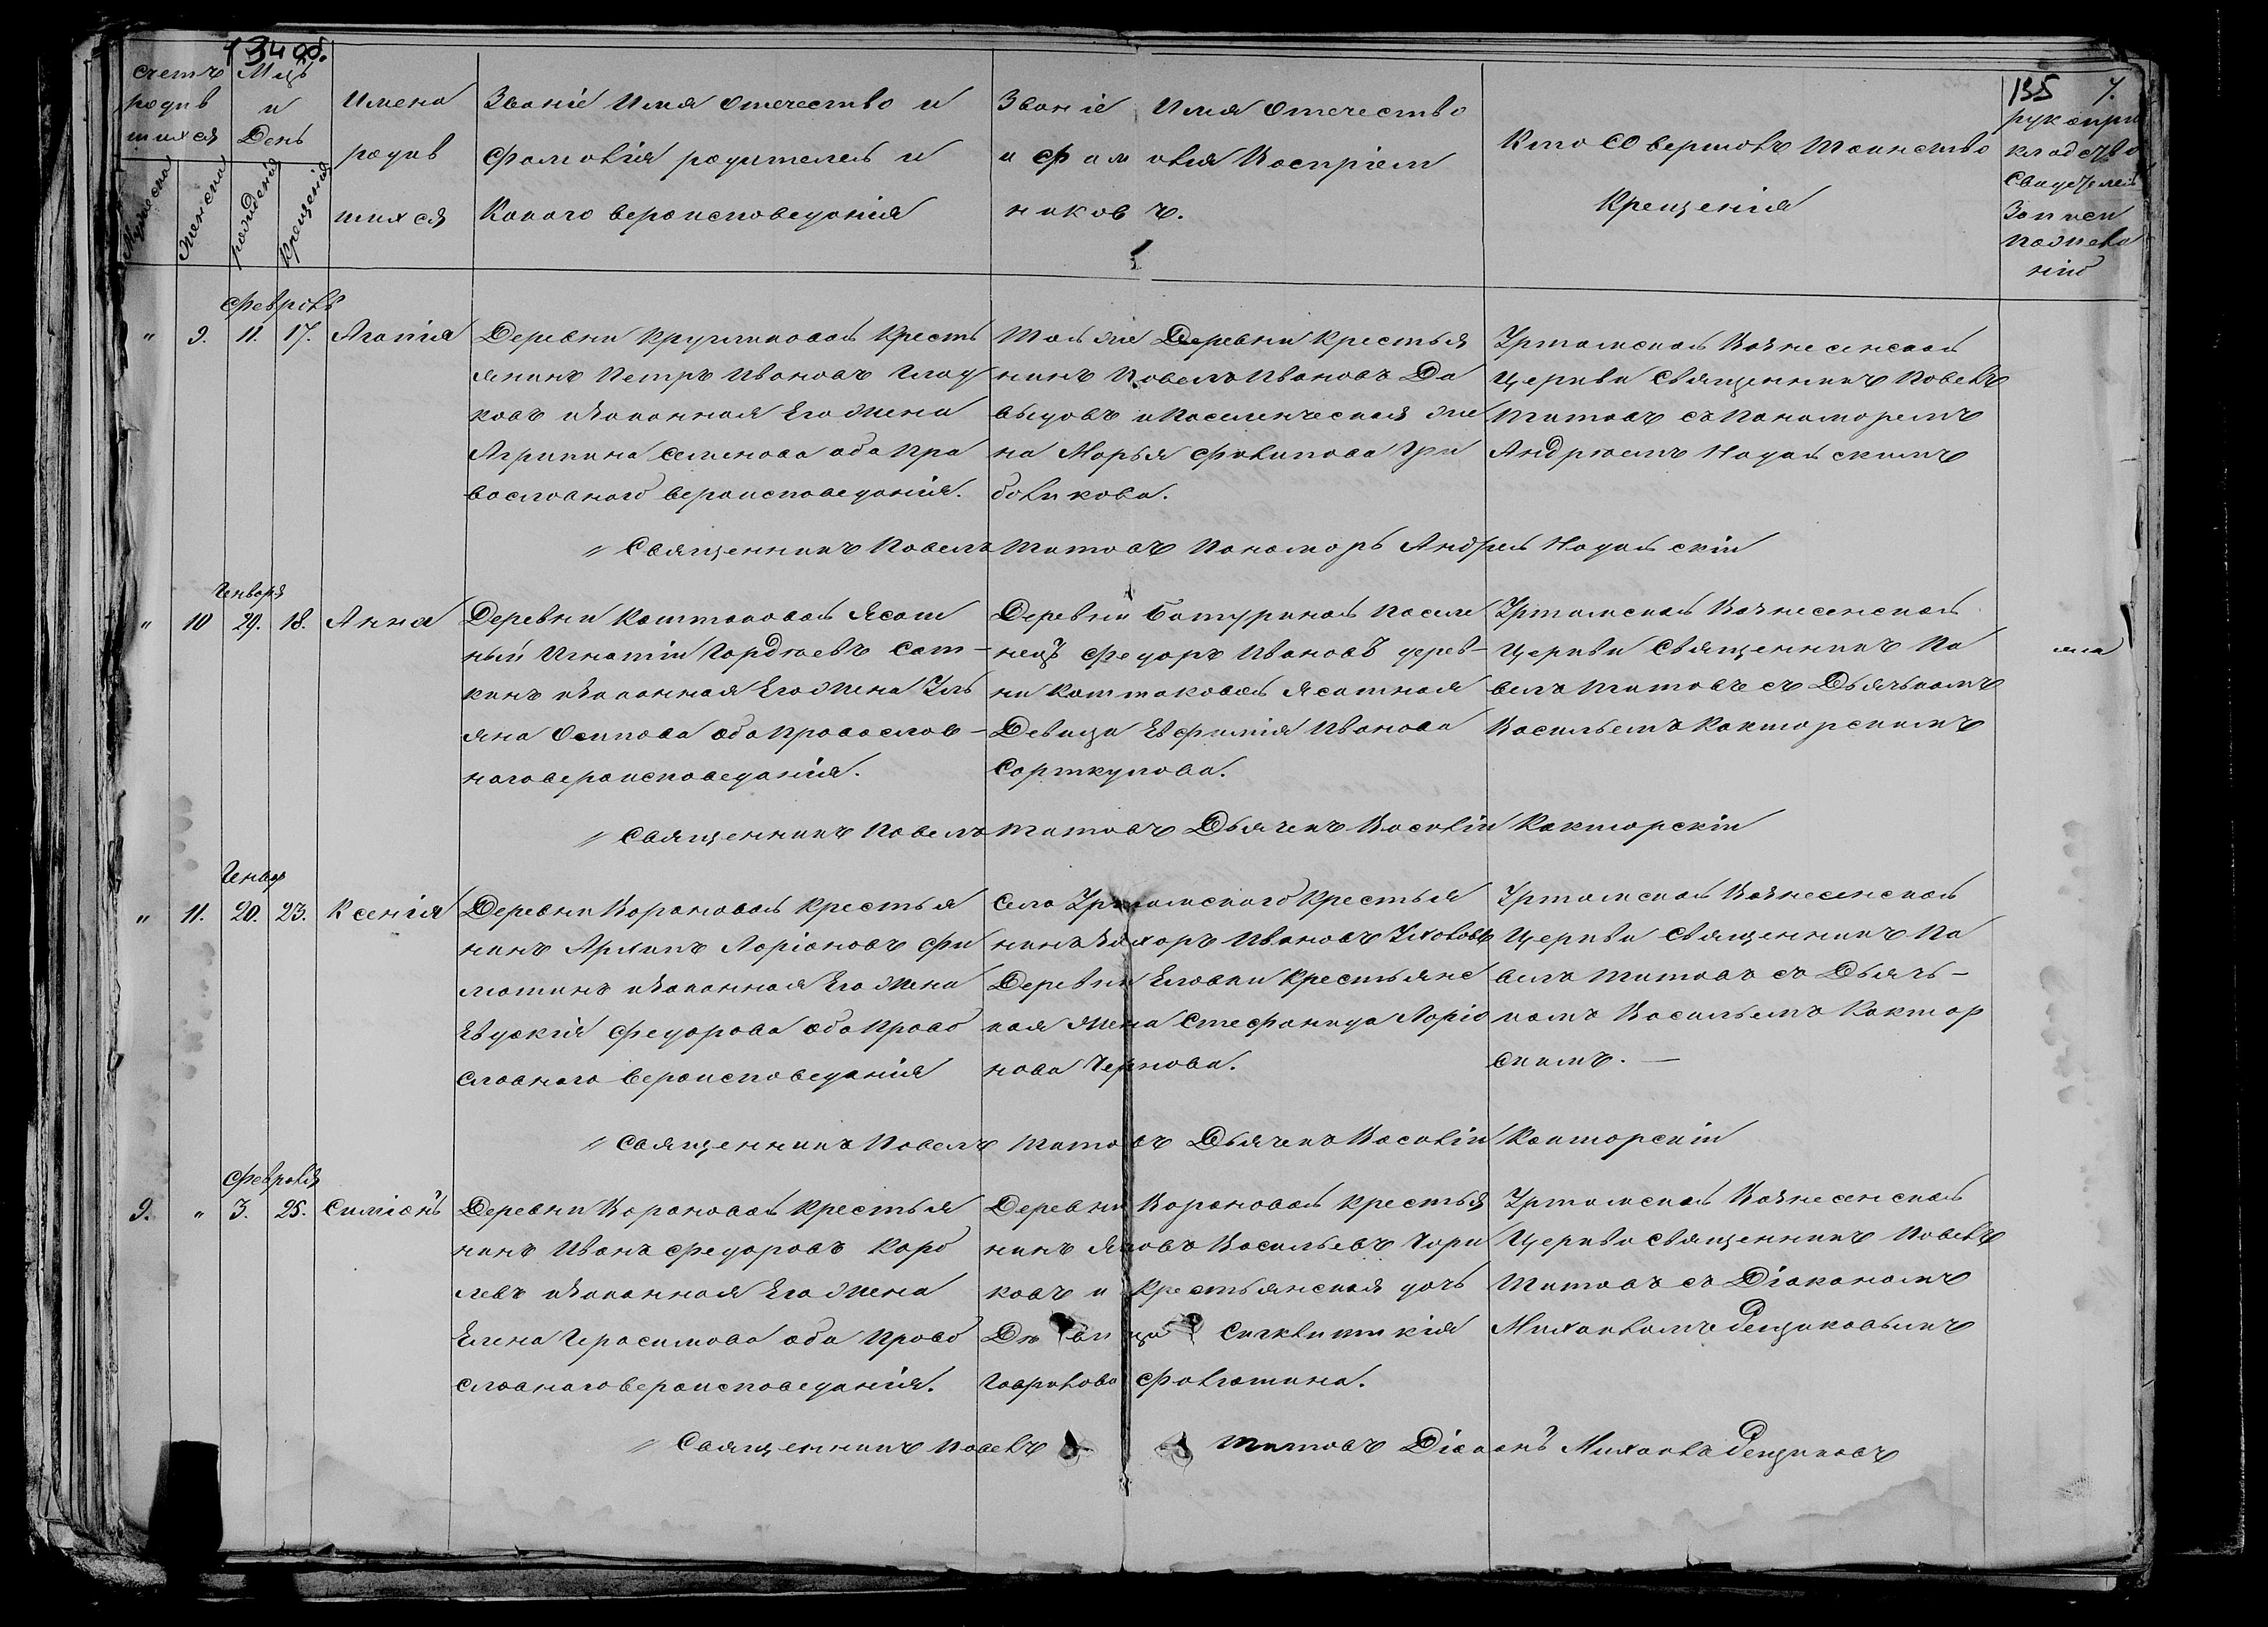 134 об.
135 7.
счетъ родив шихся
Мцъ и День
Имена родив шихся
Званіе Имя Отечество и фамилія родителей и Какого вероисповеданія
Званіе Имя Отечество и фамилія Воспріем никовъ.
Кто Совершалъ Таинство Крещенія
рукопри кладство Свидетелей Записи по желанію
Мужеска
Женска
рожденія
Крещенія
Февраль
" 9. 11. 17. Агапія
Деревни Кругликовой Кресть
янинъ Петръ Ивановъ Глад
ковъ и законная Его Жена
Агрипина Семенова оба Пра
вославнаго вероисповеданія.
Той же Деревни Крестья
нинъ Павелъ Ивановъ Да
выдовъ и Поселенческая же
на Марья Филипова Гри
боликова.
Уртамской Вознесенской
Церкви Священникъ Павелъ
Титовъ съ Пономоремъ
Андреемъ Надальскимъ
Священникъ Павелъ Титовъ Пономорь Андрей Надальскій
Генваря
" 10 29. 18. Анна
Деревни Каштаковой Ясаш
ный Игнатій Гордеевъ Сат-
кинъ и законная Его Жена Уль
яна Осипова оба Православ-
наго вероисповеданія.
Деревни Батуриной поселе
нецъ Федоръ Ивановъ дерев-
ни Каштаковой Ясашная
Девица Евфимія Иванова
Сарткупова.
Уртамской Вознесенской
Церкви Священникъ Па
велъ Титовъ съ Дьячькомъ
Васильемъ Канторскимъ
Священникъ Павелъ Титовъ Дьячекъ Василій Канторскій
Генвар
" 11. 20. 23. Ксенія
Деревни Вороновой Крестья
нинъ Архипъ Ларіоновъ Фи
латинъ и законная Его Жена
Евдокія Федорова оба Право
славнаго вероисповеданія
Села Уртамскаго Крестья
нинъ Захаръ Ивановъ
Деревни Еловки Крестьянс
кая Жена Стефанида Ларіо
нова Чернова.
Уртамской Вознесенской
Церкви Священникъ Па
велъ Титовъ съ Дьячь-
комъ Васильемъ Кантор
скимъ. —
Священникъ Павелъ Титовъ Дьячекъ Василій Канторскій
Февраля
9. " 3. 25. Симіонъ
Деревни Вороновой Крестья
нинъ Иванъ Федоровъ Коро
левъ и законная Его Жена
Елена Герасимова оба Право
славнаго вероисповеданія.
Деревни Вороновой Крестья
нинъ Яковъ Васильевъ Чари
ковъ и Крестьянская дочь
Девица Синклитикія
Гаврилова Филатина.
Уртамской Вознесенской
Церкви Священникъ Павелъ
Титовъ съ Діакономъ
Михаиломъ Рещиковымъ
Священникъ Павелъ Титовъ Діаконъ Михаилъ Рещиковъ